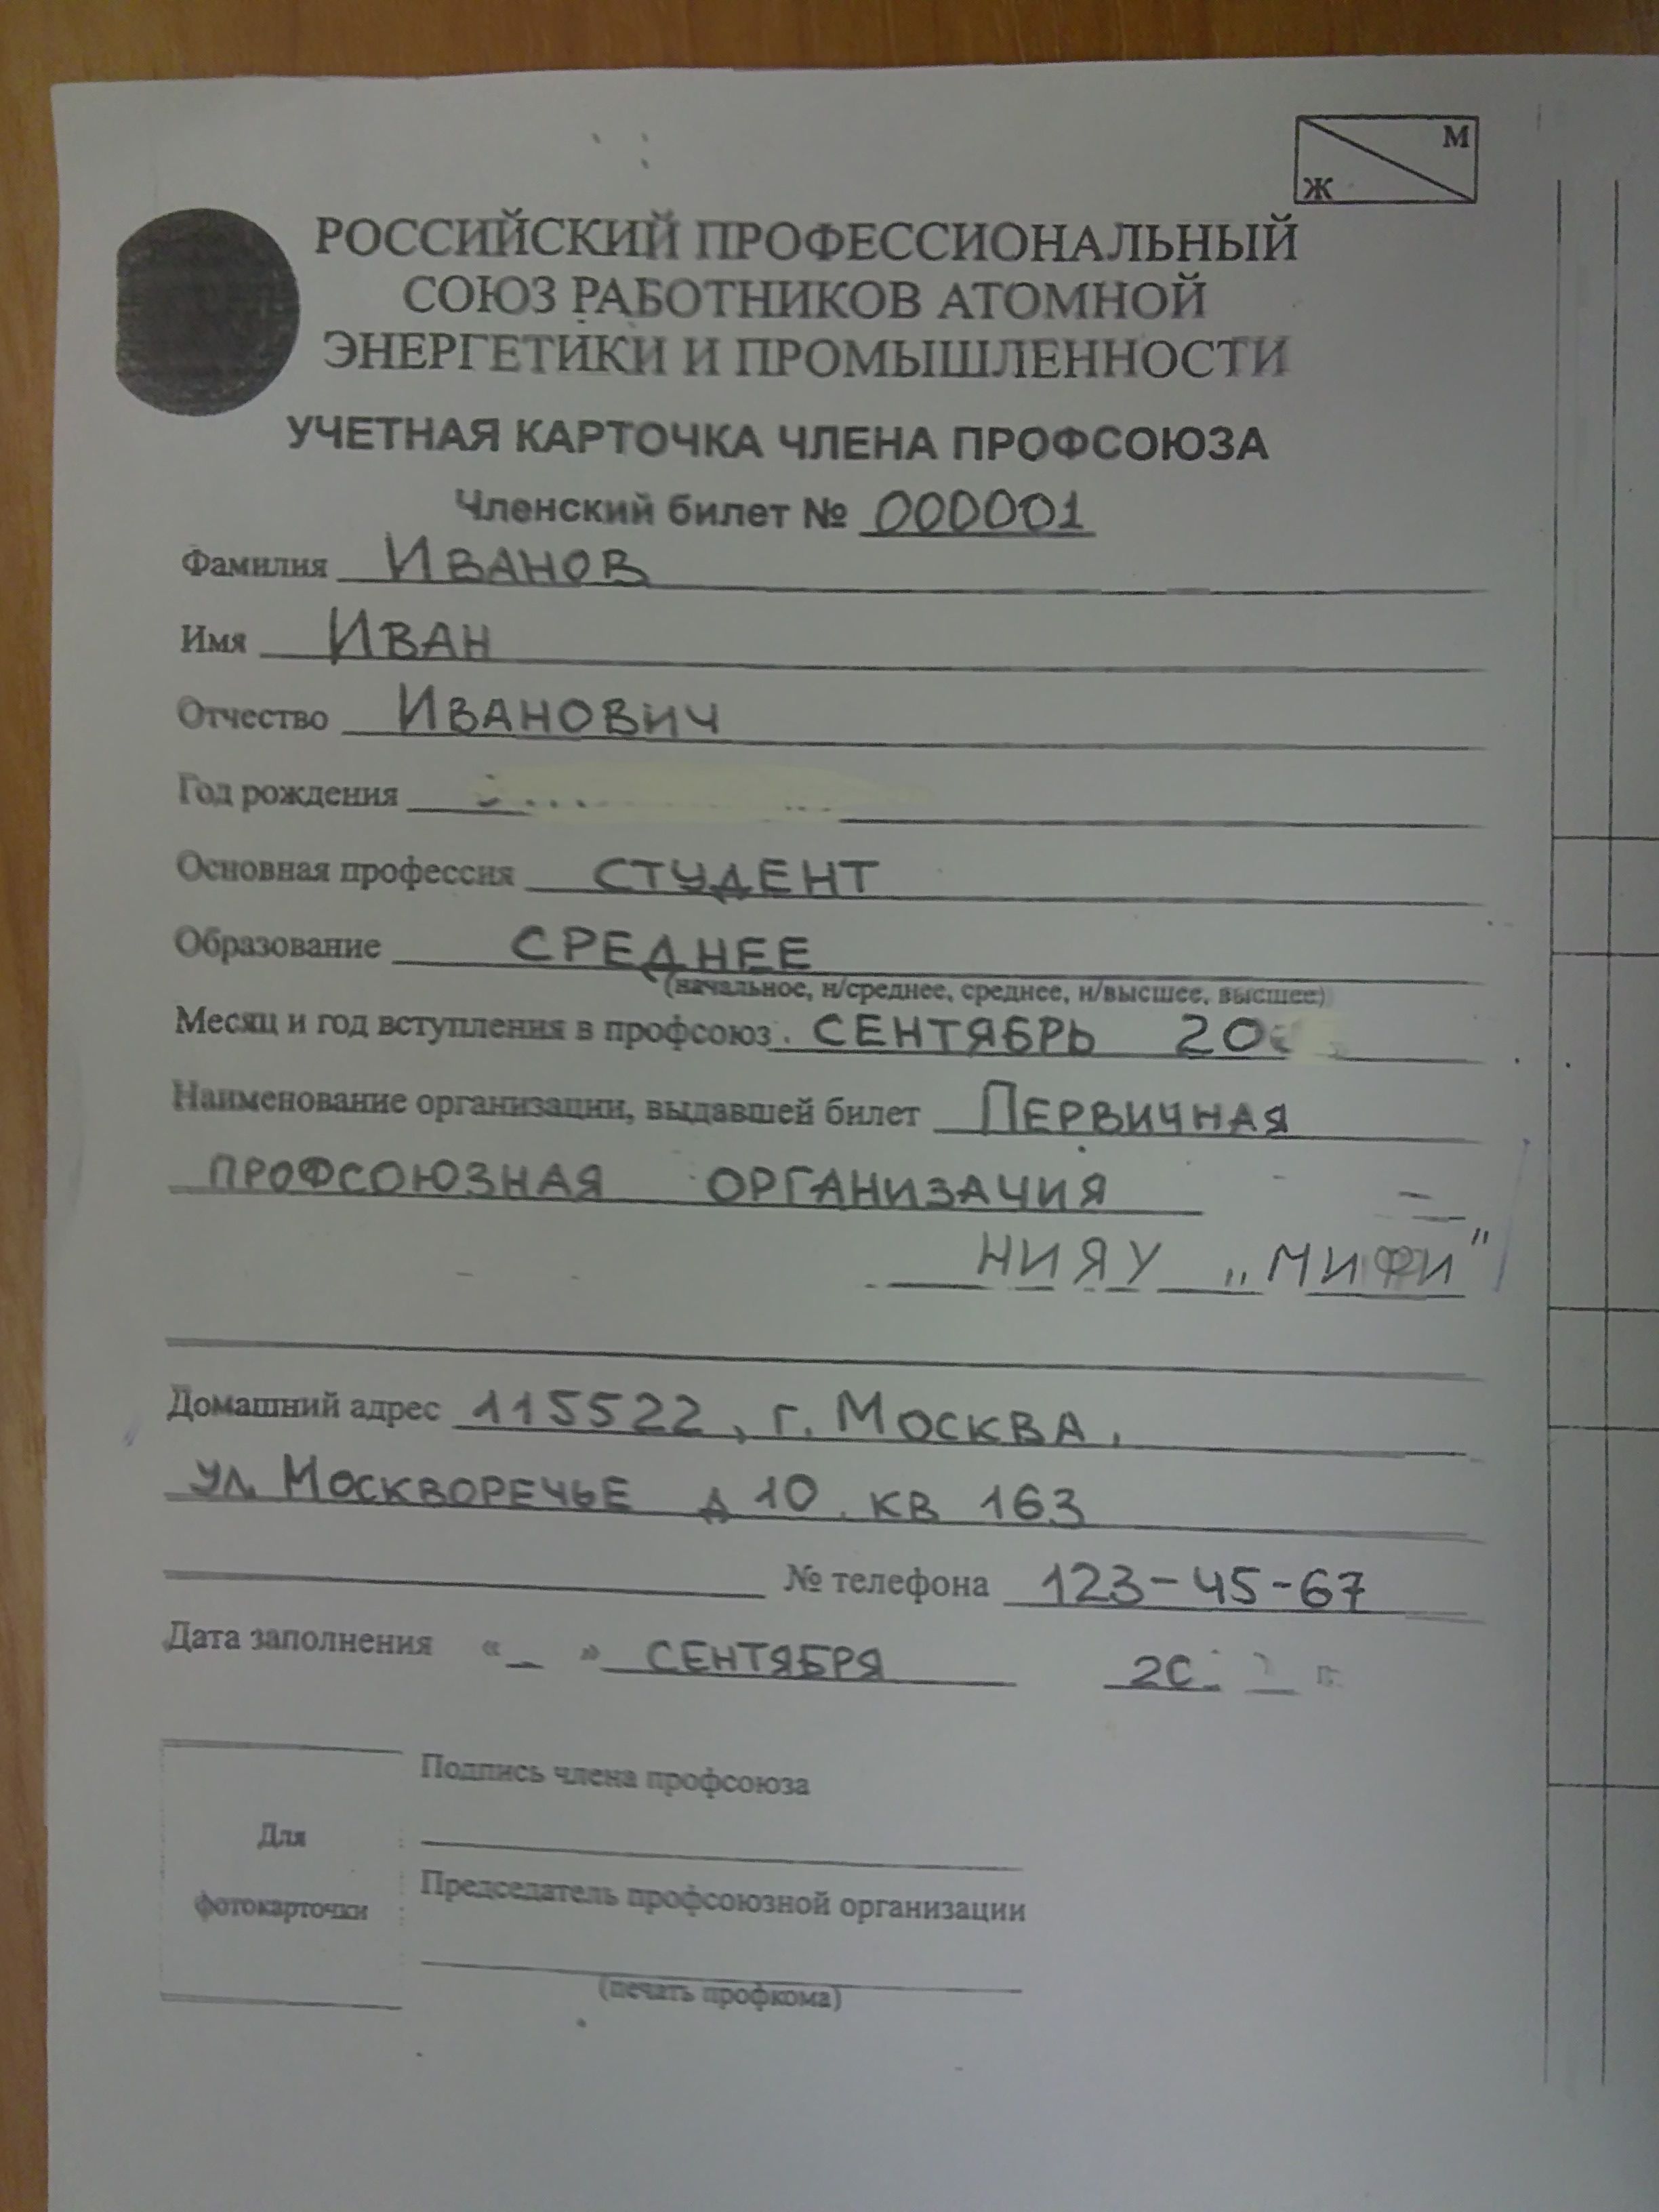 М
Ж
РОССИЙСКИЙ ПРОФЕССИОНАЛЬНЫЙ
СОЮЗ РАБОТНИКОВ АТОМНОЙ
ЭНЕРГЕТИКИ И ПРОМЫШЛЕННОСТИ
УЧЕТНАЯ КАРТОЧКА ЧЛЕНА ПРОФСОЮЗА
Членский билет № 000001
Фамилия ИВАНОВ
Имя ИВАН
Отчество ИВАНОВИЧ
Год рождения
Основная профессия СТУДЕНТ
Образование СРЕДНЕЕ
(начальное, н/среднее, среднее, н/высшее, высшее)
Месяц и год вступления в профсоюз СЕНТЯБРЬ 20
Наименование организации, выдавшей билет ПЕРВИЧНАЯ
ПРОФСОЮЗНАЯ ОРГАНИЗАЦИЯ
НИЯУ „МИФИ"
Домашний адрес 115522, г. МОСКВА,
УЛ. МОСКВОРЕЧЬЕ Д 10, КВ 163
№ телефона 123-45-67
Дата заполнения « » СЕНТЯБРЯ 20 г.
Подпись члена профсоюза
Для
фотокарточки
Председатель профсоюзной организации
(печать профкома)